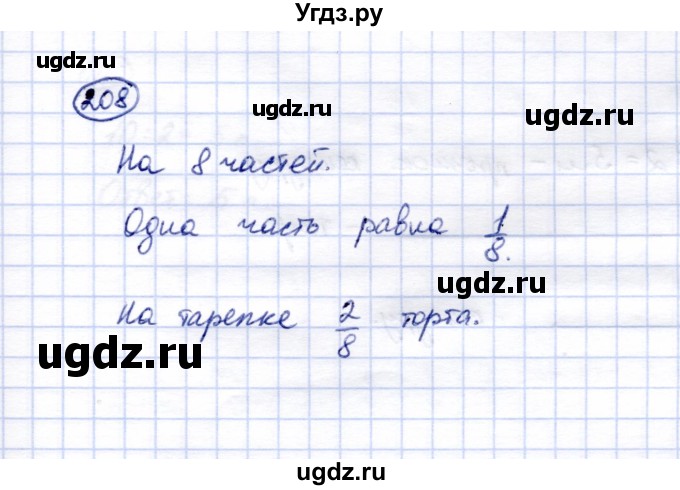 Угдз.ру
ugdz.ru
208
ugdz.ru
На 8 частей.
Одна часть равна 1/8.
ugdz.ru
На тарелке 2/8 торта.
ugdz.ru
ugdz.ru